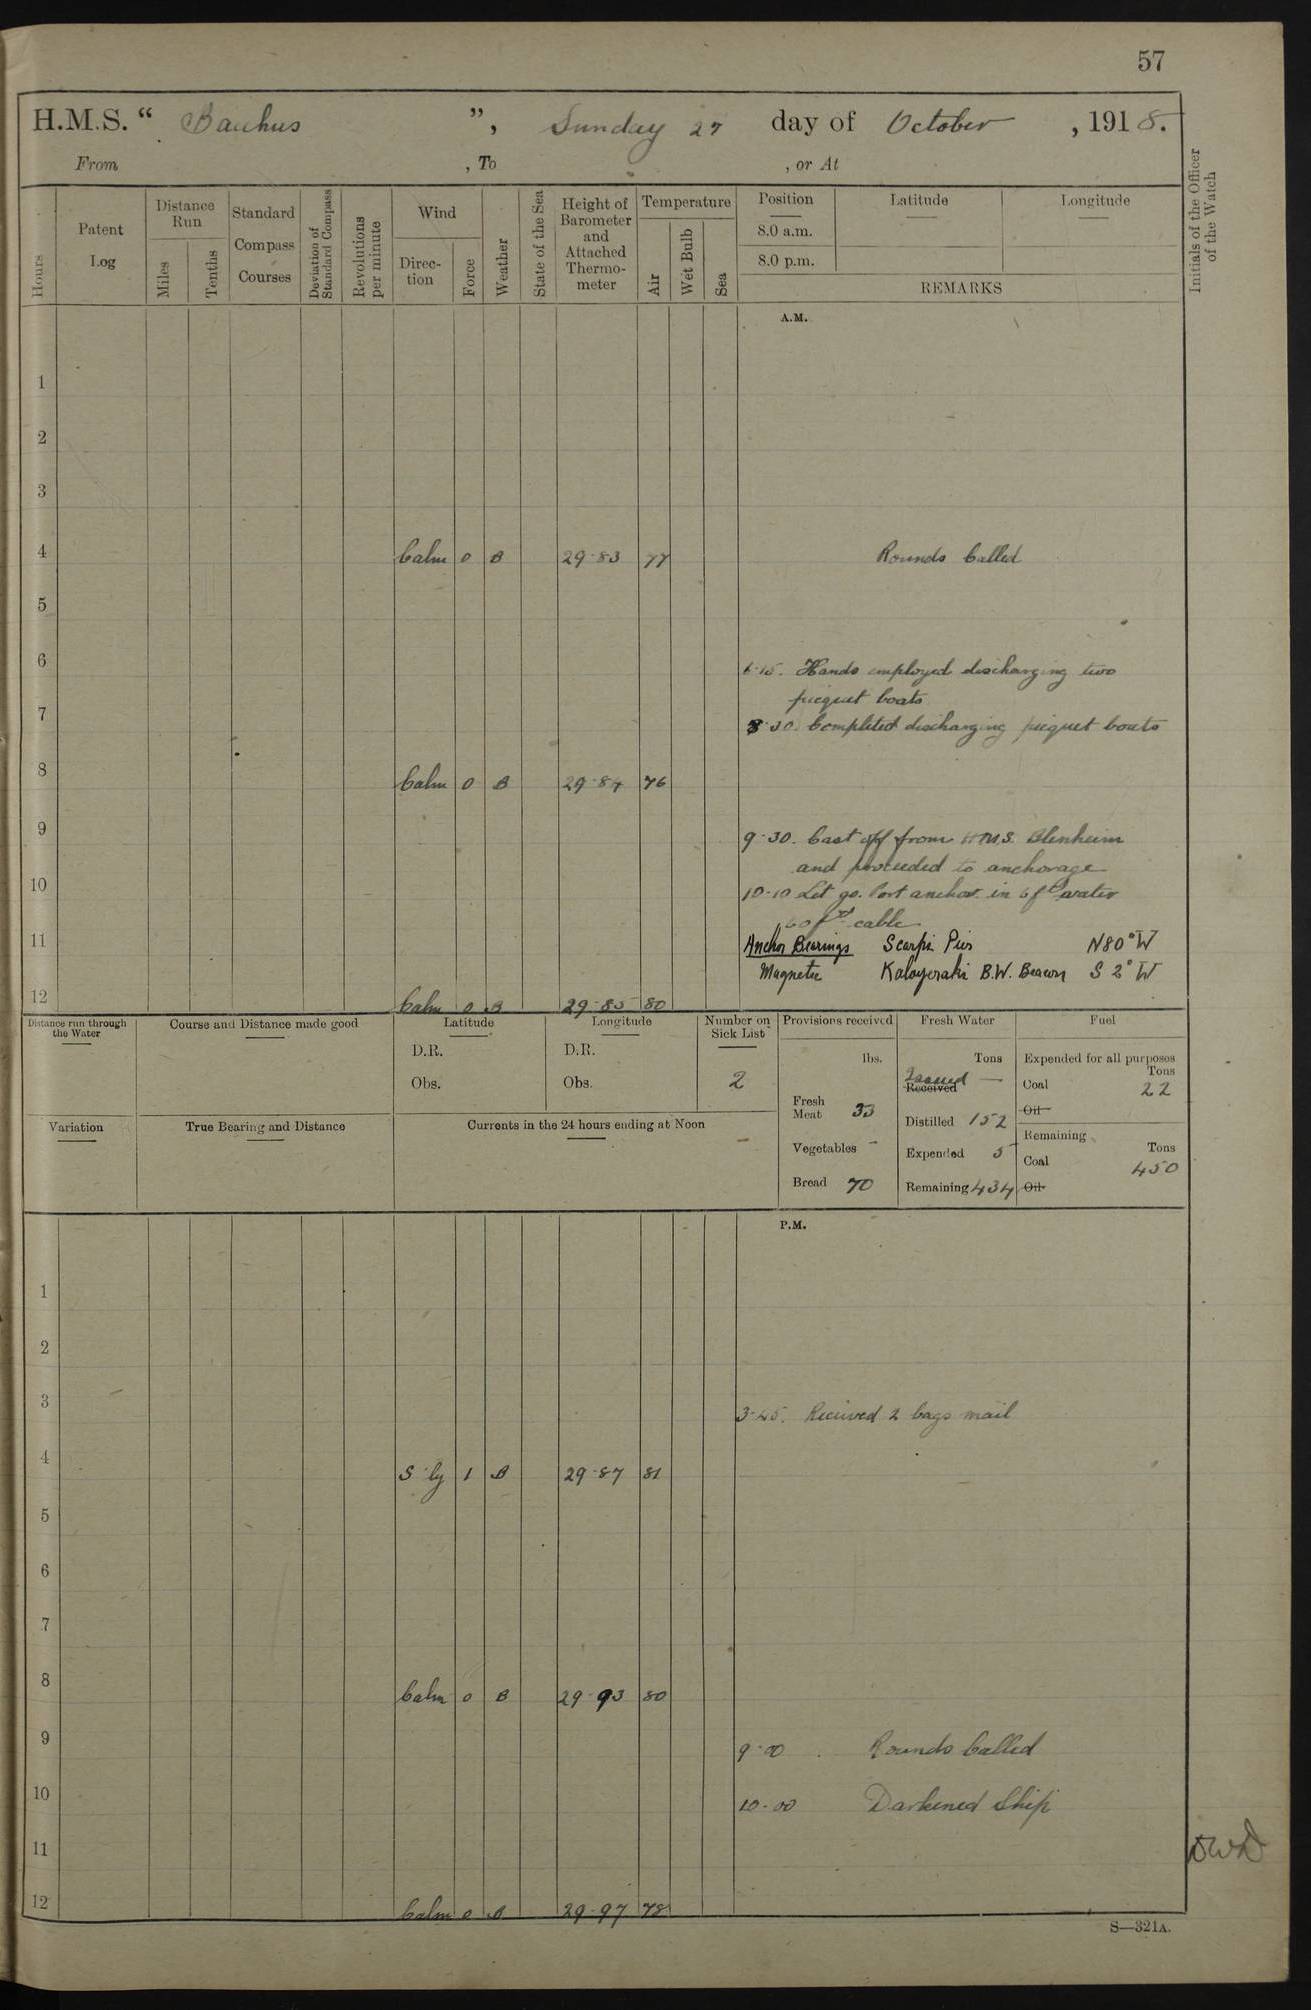 57
H.M.S. “ Bacchus ”, Sunday 27 day of October , 1918.
From , To , or At
Hours
Patent Log
Distance Run
Miles
Tenths
Standard Compass Courses
Deviation of Standard Compass
Revolutions per minute
Wind
Direction
Force
Weather
State of the Sea
Height of Barometer and Attached Thermometer
Temperature
Air
Wet Bulb
Sea
Position
8.0 a.m.
8.0 p.m.
Latitude
Longitude
REMARKS
Initials of the Officer of the Watch
A.M.
1
2
3
4 Calm 0 B 29·83 77 Rounds Called
5
6
6·15. Hands employed discharging two
picquet boats
7
8·30. Completed discharging picquet boats
8 Calm 0 B 29·84 76
9
9·30. Cast off from H.M.S. Blenheim
and proceeded to anchorage
10
10·10 Let go. Port anchor in 6 fth water
60 fth cable
11
Anchor Bearings Scarpi Pier N80°W
Magnetic Kaloyeraki B.W. Beacon S 2° W
12 Calm 0 B 29·85 80
Distance run through the Water
Course and Distance made good
Latitude
D.R.
Obs.
Longitude
D.R.
Obs.
Number on Sick List
2
Provisions received
lbs.
Fresh Meat 33
Vegetables -
Bread 70
Fresh Water
Tons
Issued —
Received
Distilled 152
Expended 5
Remaining 434
Fuel
Expended for all purposes
Tons
Coal 22
Oil
Remaining
Tons
Coal 450
Oil
Variation
True Bearing and Distance
Currents in the 24 hours ending at Noon
P.M.
1
2
3
3·45. Received 2 bags mail
4 S'ly 1 B 29·87 81
5
6
7
8 Calm 0 B 29·93 80
9
9·00 . Rounds Called
10
10·00 Darkened Ship
11
DWD
12 Calm 0 B 29·97 78
S—321A.